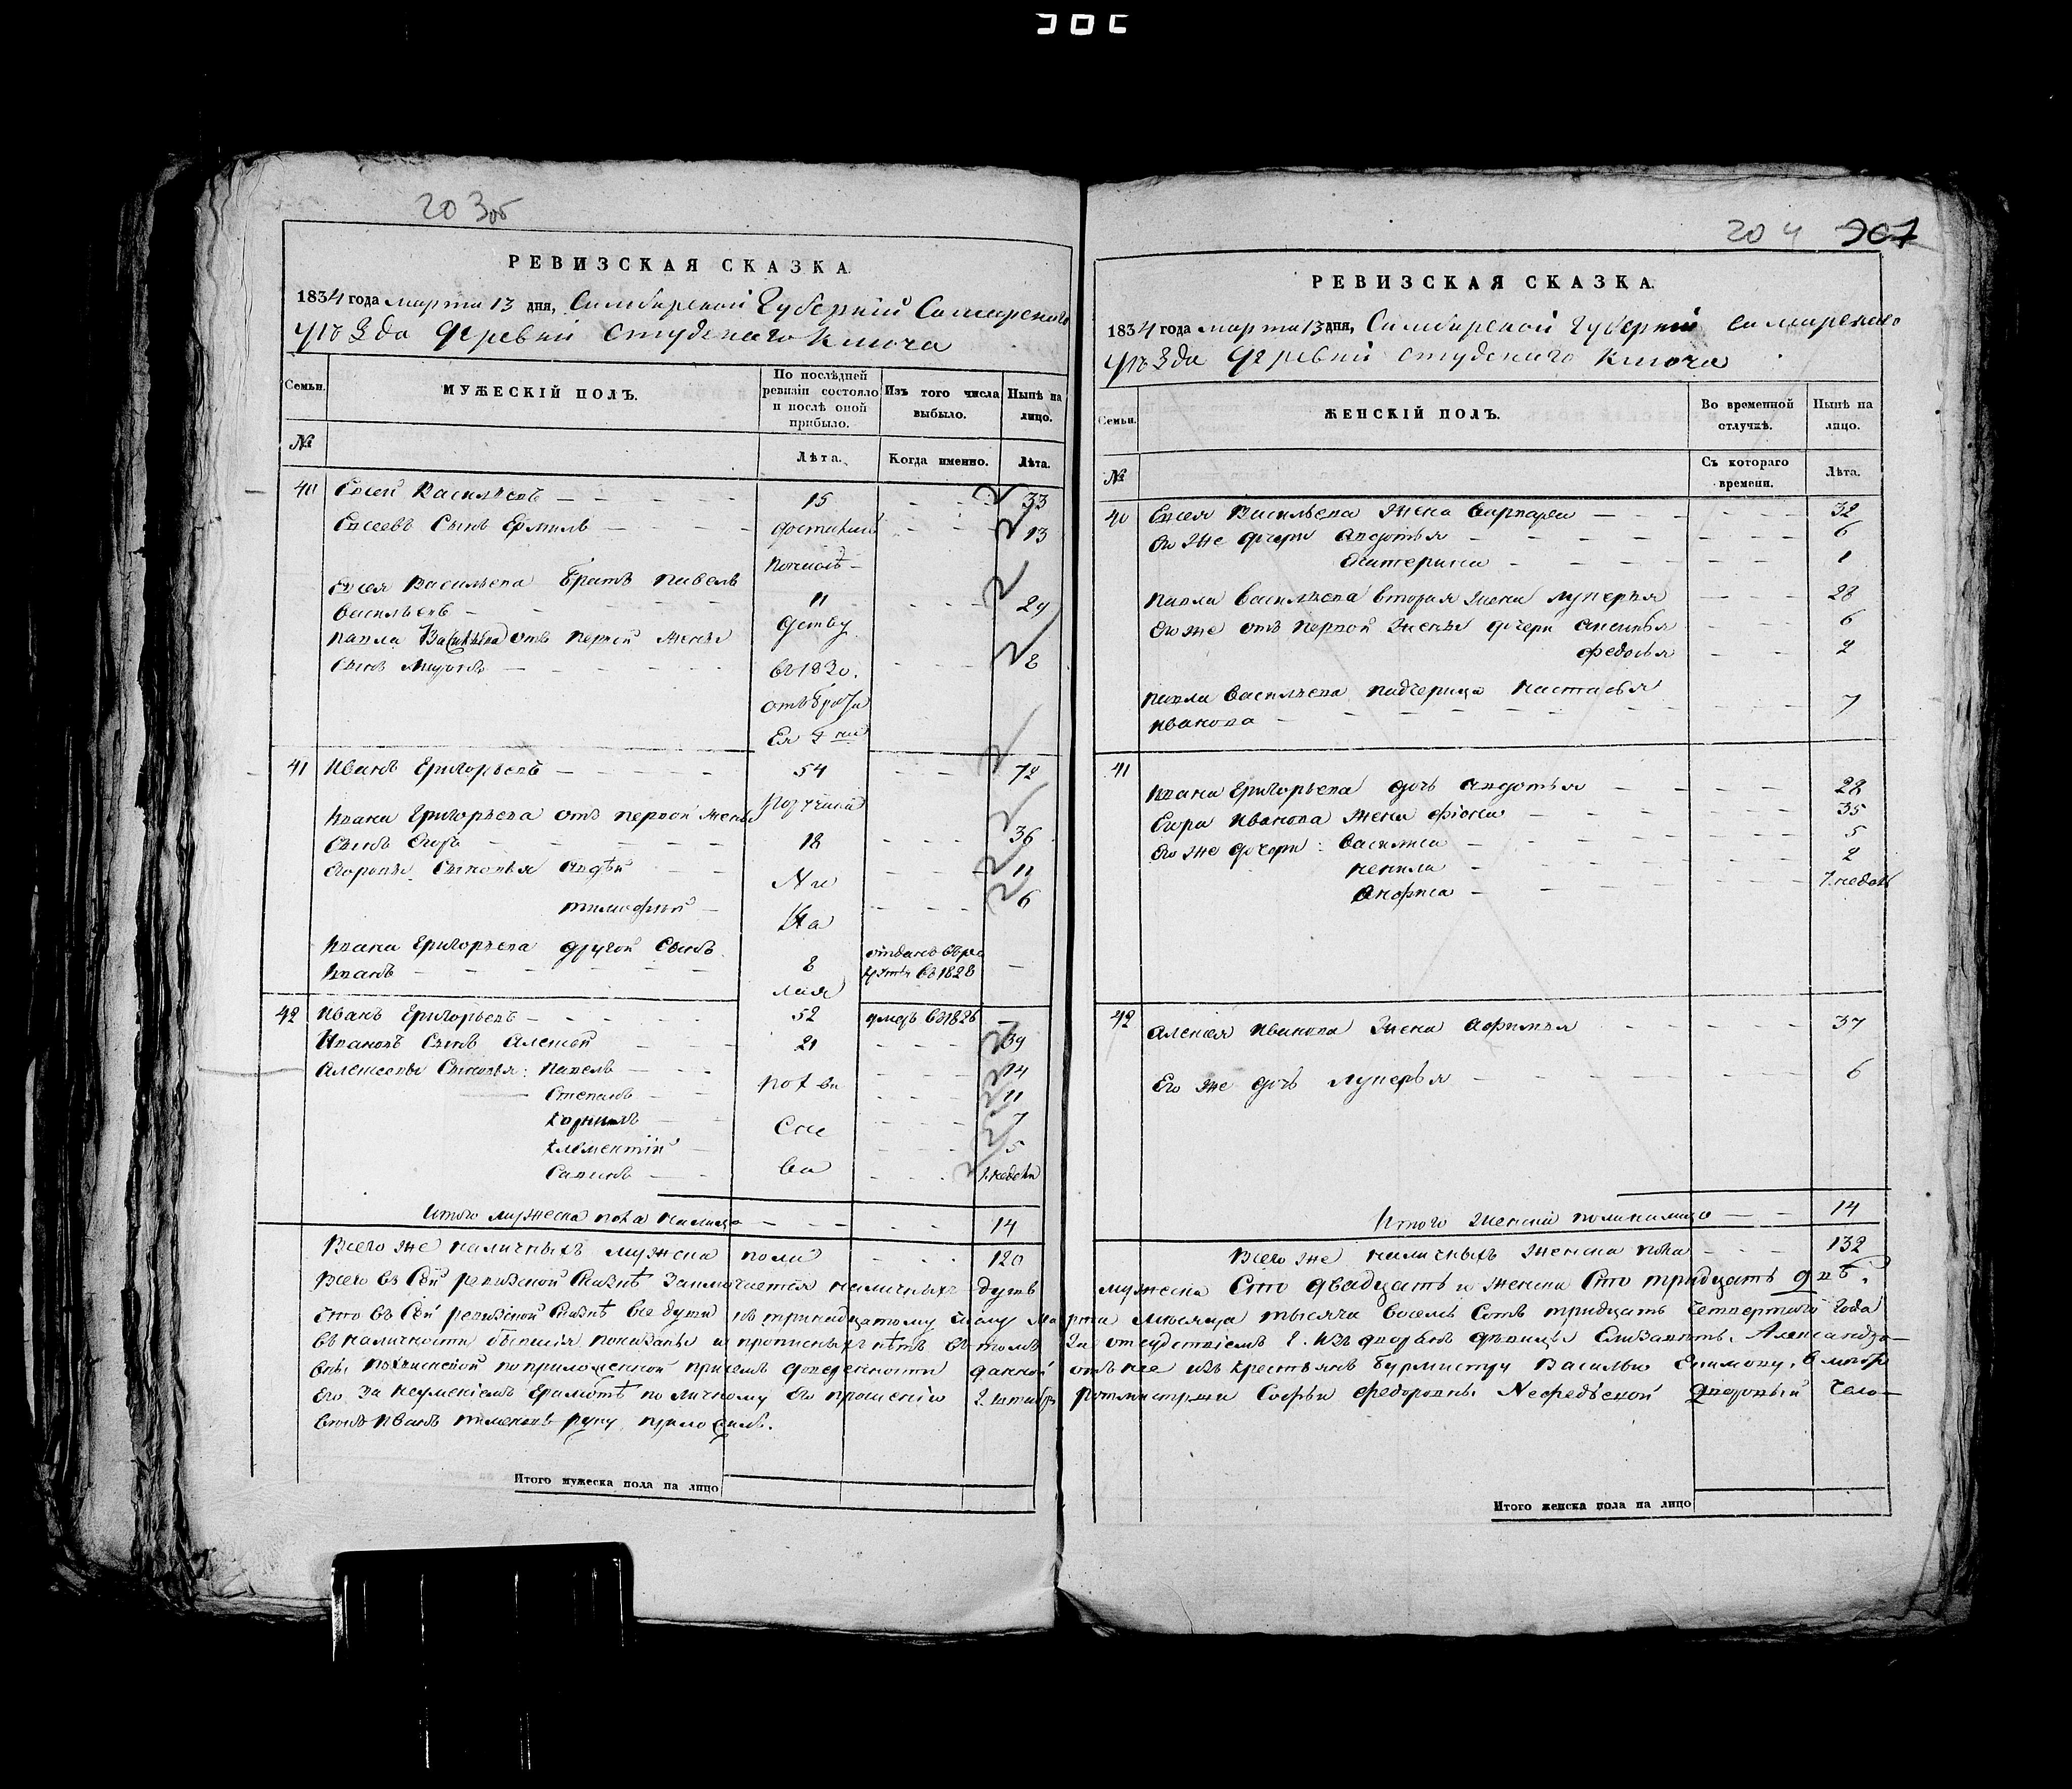 203об
РЕВИЗСКАЯ СКАЗКА.
1834 года марта 13 дня, Симбирской Губернии Самарского
уѣзда деревни Студенаго Ключа
Семьи.
МУЖЕСКІЙ ПОЛЪ.
По послѣдней ревизіи состояло и послѣ оной прибыло.
Изъ того числа выбыло.
Нынѣ на лицо.
№
Лѣта.
Когда именно.
Лѣта.
40 Евсей Васильевъ 15 33
Евсеевъ Сынъ Ермилъ 13
Евсея Васильева братъ Павелъ
Васильевъ 11 29
Павла Васильева отъ первой жены
Сынъ 8
въ 1830.
41 Иванъ Григорьевъ 54 72
Ивана Григорьева отъ первой жены
Сынъ Егоръ 18 36
Егоровы Сыновья 11
Тимофей 6
Ивана Григорьева другой Сынъ
Иванъ 8 отданъ въ рекруты въ 1828
42 Иванъ Григорьевъ 52 умеръ въ 1826
Ивановъ Сынъ Алексей 21 39
Алексеевы Сыновья: Павелъ 14
Степанъ 11
Корнилъ 7
Клементій 5
1. недели
Итого мужеска пола налицо 14
Всего же наличныхъ мужеска пола 120
204 307
РЕВИЗСКАЯ СКАЗКА.
1834 года марта 13 дня, Симбирской Губернии Самарскаго
уѣзда деревни Студенаго Ключа
Семьи.
ЖЕНСКІЙ ПОЛЪ.
Во временной отлучкѣ.
Нынѣ на лицо.
№
Съ котораго времени.
Лѣта.
40 Евсея Васильева жена Варвара 32
Его же дочери Авдотья 6
Катерина 1
Павла Васильева вторая жена Лукерья 28
Его же отъ первой жены дочери 6
Федосья 2
Павла Васильева падчерица Настасья
Иванова 7
41 Ивана Григорьева дочь Авдотья 28
Егора Иванова жена Фіокла 35
Его же дочери: Василиса 5
Ненила 2
Анфиса 7. недель
42 Алексея Иванова жена Афимья 37
Его же дочь Лукерья 6
Итого женска пола налицо 14
Всего же наличныхъ женска пола 132
Всего въ Сей ревизской Сказкѣ Заключается наличныхъ душъ мужеска Сто двадцать и женска Сто тридцать двѣ.
Что въ Сей ревизской Сказкѣ все души по тринадцатому числу Марта месяца тысяча восемь Сотъ тридцать четвертаго года
въ наличности бывшія показаны и прописныхъ нѣтъ въ томъ За отсудствіемъ Г. изъ дворянъ девицы Елизаветы Александро-
вны по приложенной при семъ доверенности данной отъ нее изъ крестьянъ бурмистру Василью, а вместо
Его за неуменіемъ Грамотѣ по личному Его прошенію Софьи Федоровны дворовый чело-
векъ Иванъ руку приложилъ.
Итого мужеска пола на лицо
Итого женска пола на лицо